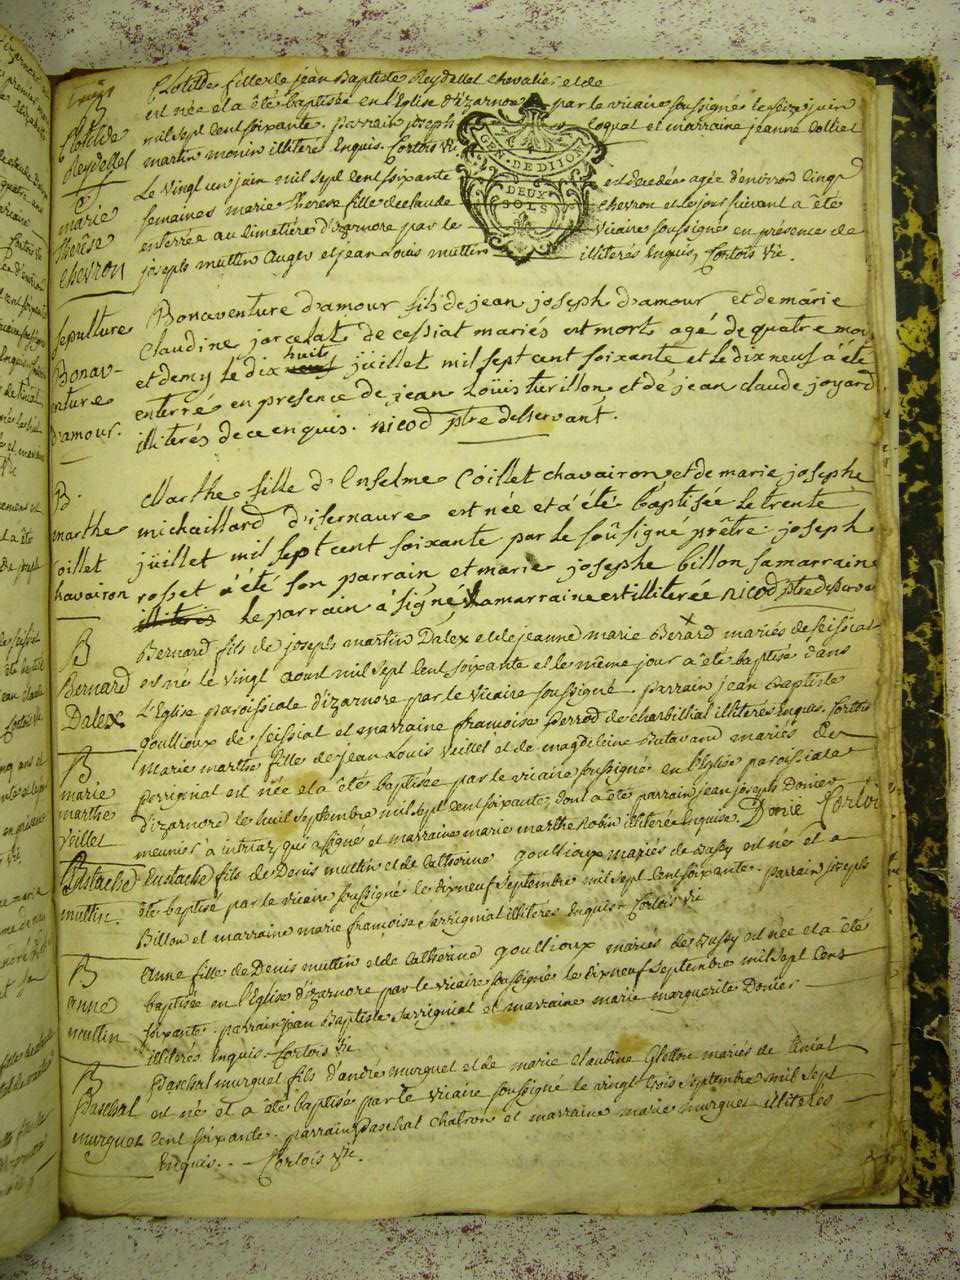 B
Clotilde
Reydellet
Clotilde fille de jean Baptiste Reydellet chevalier et de
est née et a été baptisée en l'Eglise d'izarnore par le vicaire soussigné le seize juin
mil sept cent soixante. parrain joseph loquat et marraine jeanne Colliet
martin monin illiterés Enquis. Cortois Vic
GEN. DE DIJON
DEUX
SOLS
marie
therese
chevron
Le vingt un juin mil sept cent soixante est decedée agée d'environ cinq
semaines marie therese fille de claude chevron et le jour suivant a été
enterrée au cimetière d'izarnore par le vicaire soussigné en presence de
joseph muttin Auger et jean Louis muttin illiterés Enquis, Cortois Vic.
sépulture
Bonav-
enture
d'amour.
Bonaventure d'amour fils de jean joseph d'amour et de marie
Claudine jarcelat de cessiat mariés est mort agé de quatre moi
et demy le dix huit juillet mil sept cent soixante et le dix neuf à été
enterré en presence de jean Loüis turillon et de jean claude joyard
illiterés de ce enquis. nicod ptre desservant.
B.
marthe
Coillet
chavairon
Marthe fille d'Enselme Coillet chavairon et de marie josephe
michaillard d'isernaure est née et a été baptisée le trente
juillet mil sept cent soixante par le soûsigné prêtre. joseph
rosset à été son parrain et marie josephe billon sa marraine
illiterés le parrain à signé la marraine est illiterée nicod ptre deserva
B
Bernard
Dalex
Bernard fils de joseph martin Dalex et de jeanne marie Berard mariés de seissiat
est né le vingt aout mil sept cent soixante et le même jour a été baptisé dans
L'Eglise paroissiale d'izarnore par le vicaire soussigné. parrain jean Baptiste
goullioux de seissiat et marraine françoise perrod de charbilliat illiterés Enquis. Cortois
B
marie
marthe
Veillet
Marie marthe fille de jean Louis Veillet et de magdeleine Butavand mariés de
perrignat est née et a été baptisée par le vicaire soussigné en l'Eglise paroissiale
d'izarnore le huit septembre mil sept cent soixante, dont a été parrain jean joseph Donier
meunier a intriaz qui a signé et marraine marie marthe Robin illiterée Enquise. Donié Cortoi
Eustache
muttin.
Eustache fils de Denis muttin et de Catherine goullioux mariés de Bussy est né et a
été baptisé par le vicaire soussigné le dix neuf septembre mil sept cent soixante. parrain joseph
Billon et marraine marie françoise sarrigniat illiterés Enquis. Cortois Vic
B
anne
muttin
Anne fille de Denis muttin et de Catherine goullioux mariés de Bussy est née et a été
baptisée en l'Eglise d'izarnore par le vicaire soussigné le dix neuf septembre mil sept cent
soixante. parrain jean Baptiste sarrigniat et marraine marie marguerite Donier
illiterés Enquis. Cortois Vic
B
Paschal
murguet
Paschal murguet fils d'andré murguet et de marie claudine mariés de
est né et a été baptisé par le vicaire soussigné le vingt trois septembre mil sept
cent soixante. parrain paschal chatron et marraine marie murguet illiterés
Enquis. - - Cortois Vic.